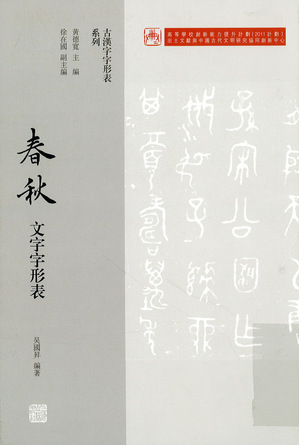 高等學校創新能力提升計劃(2011計劃)
出土文獻與中國古代文明研究協同創新中心
古漢字字形表
系列
黃德寬 主 編
徐在國 副主編
春秋
文字字形表
吳國昇 編著